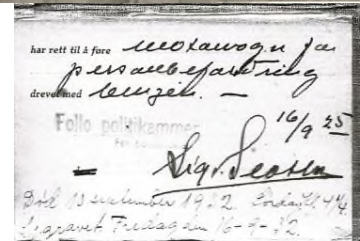 har rett til å føre motorvogn for
personbefordring
drevet med benzin. —
16/9 25
Follo politikammer
Død 13 september 1932 Lørdag kl. 4¼
Begravet Fredag den 16-9-32.